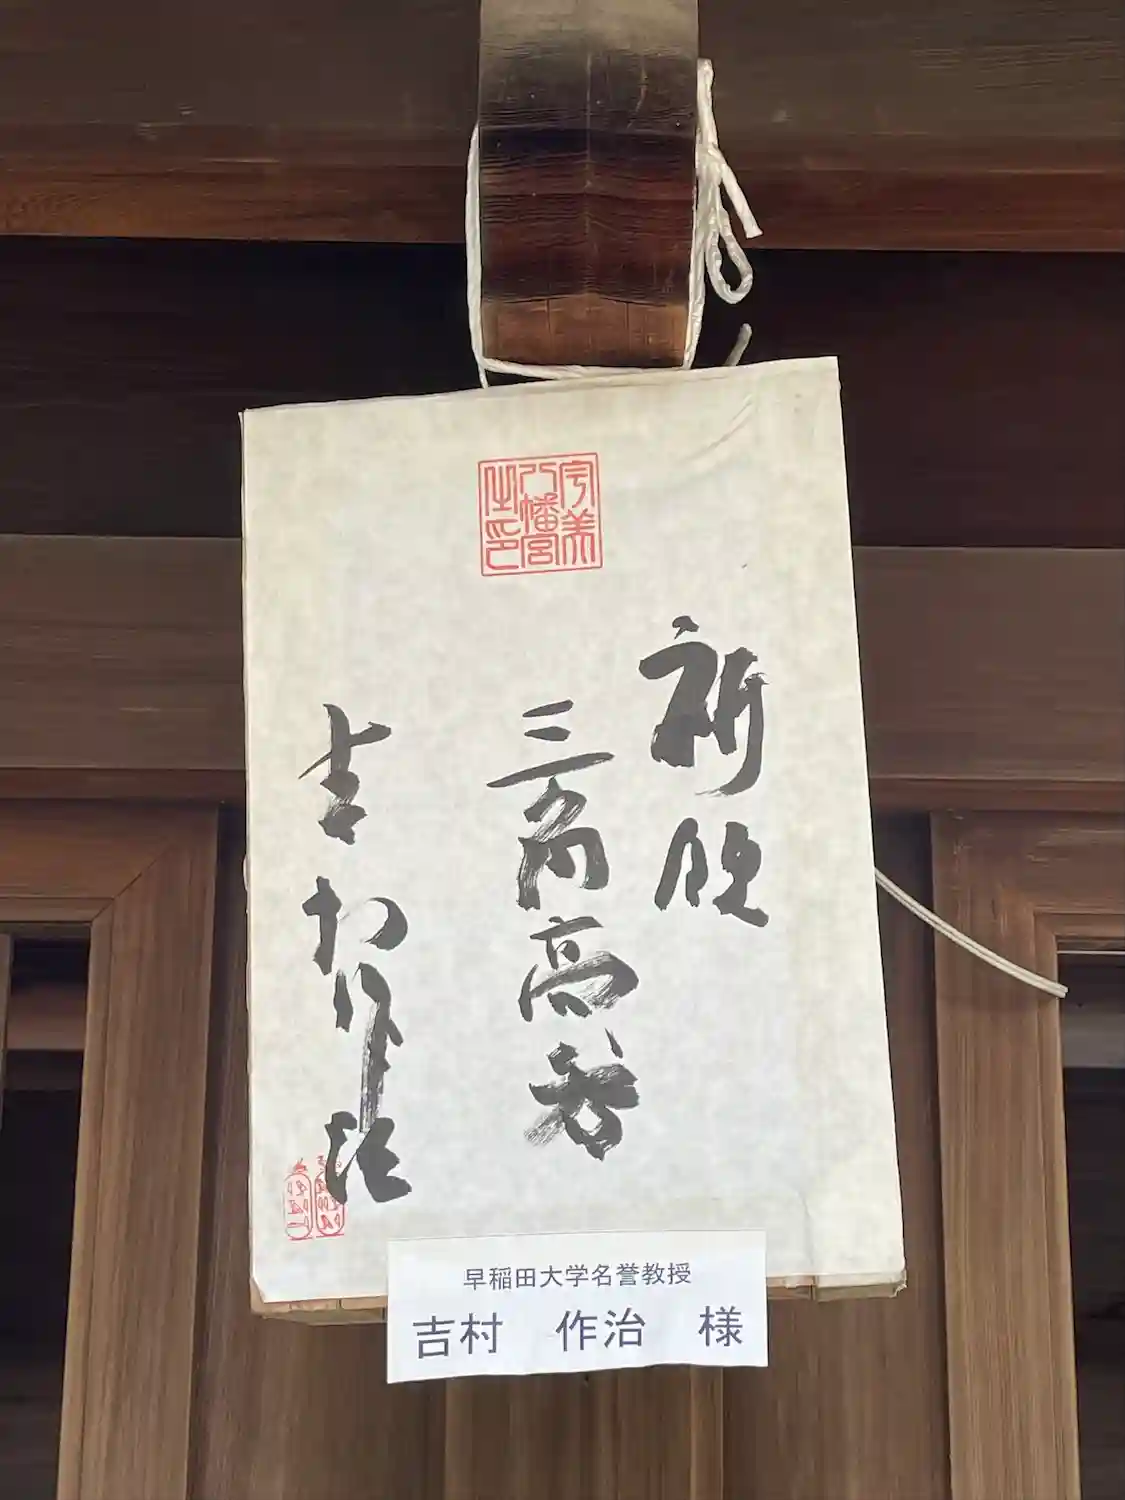 宇美
八幡宮
之印
祈
三角高
吉村作治
早稲田大学名誉教授
吉村 作治 様